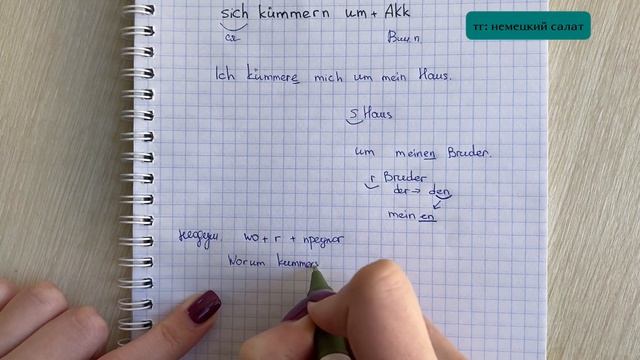 sich kümmern um + Akk
тг: немецкий салат
ся Вин п.
Ich kümmere mich um mein Haus.
s Haus
um meinen Bruder.
r Bruder
der → den
mein en
неодуш. wo + r + предлог
Worum kümmers